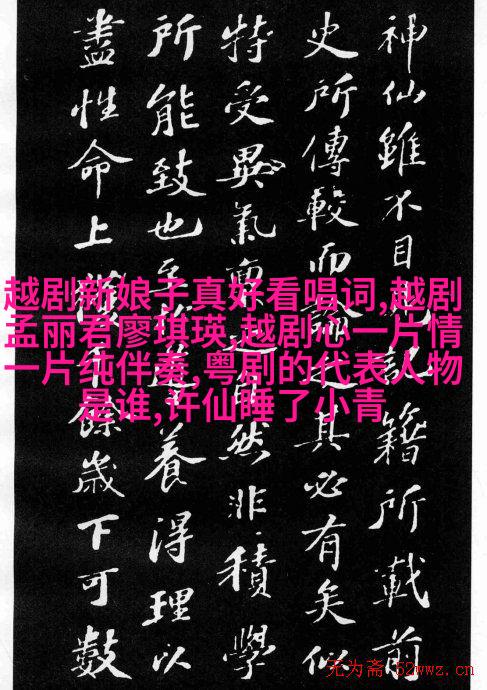 神仙雖不目記籍所載前
史所傳較而論之其必有矣似
特受異氣稟之自然非積學
所能致也至養得理以
盡性命上獲千餘歲下可數
越剧新娘子真好看唱词,越剧
孟丽君廖琪瑛,越剧心一片情
一片纯伴奏,粤剧的代表人物
是谁,许仙睡了小青
无为斋·52wwz.cn